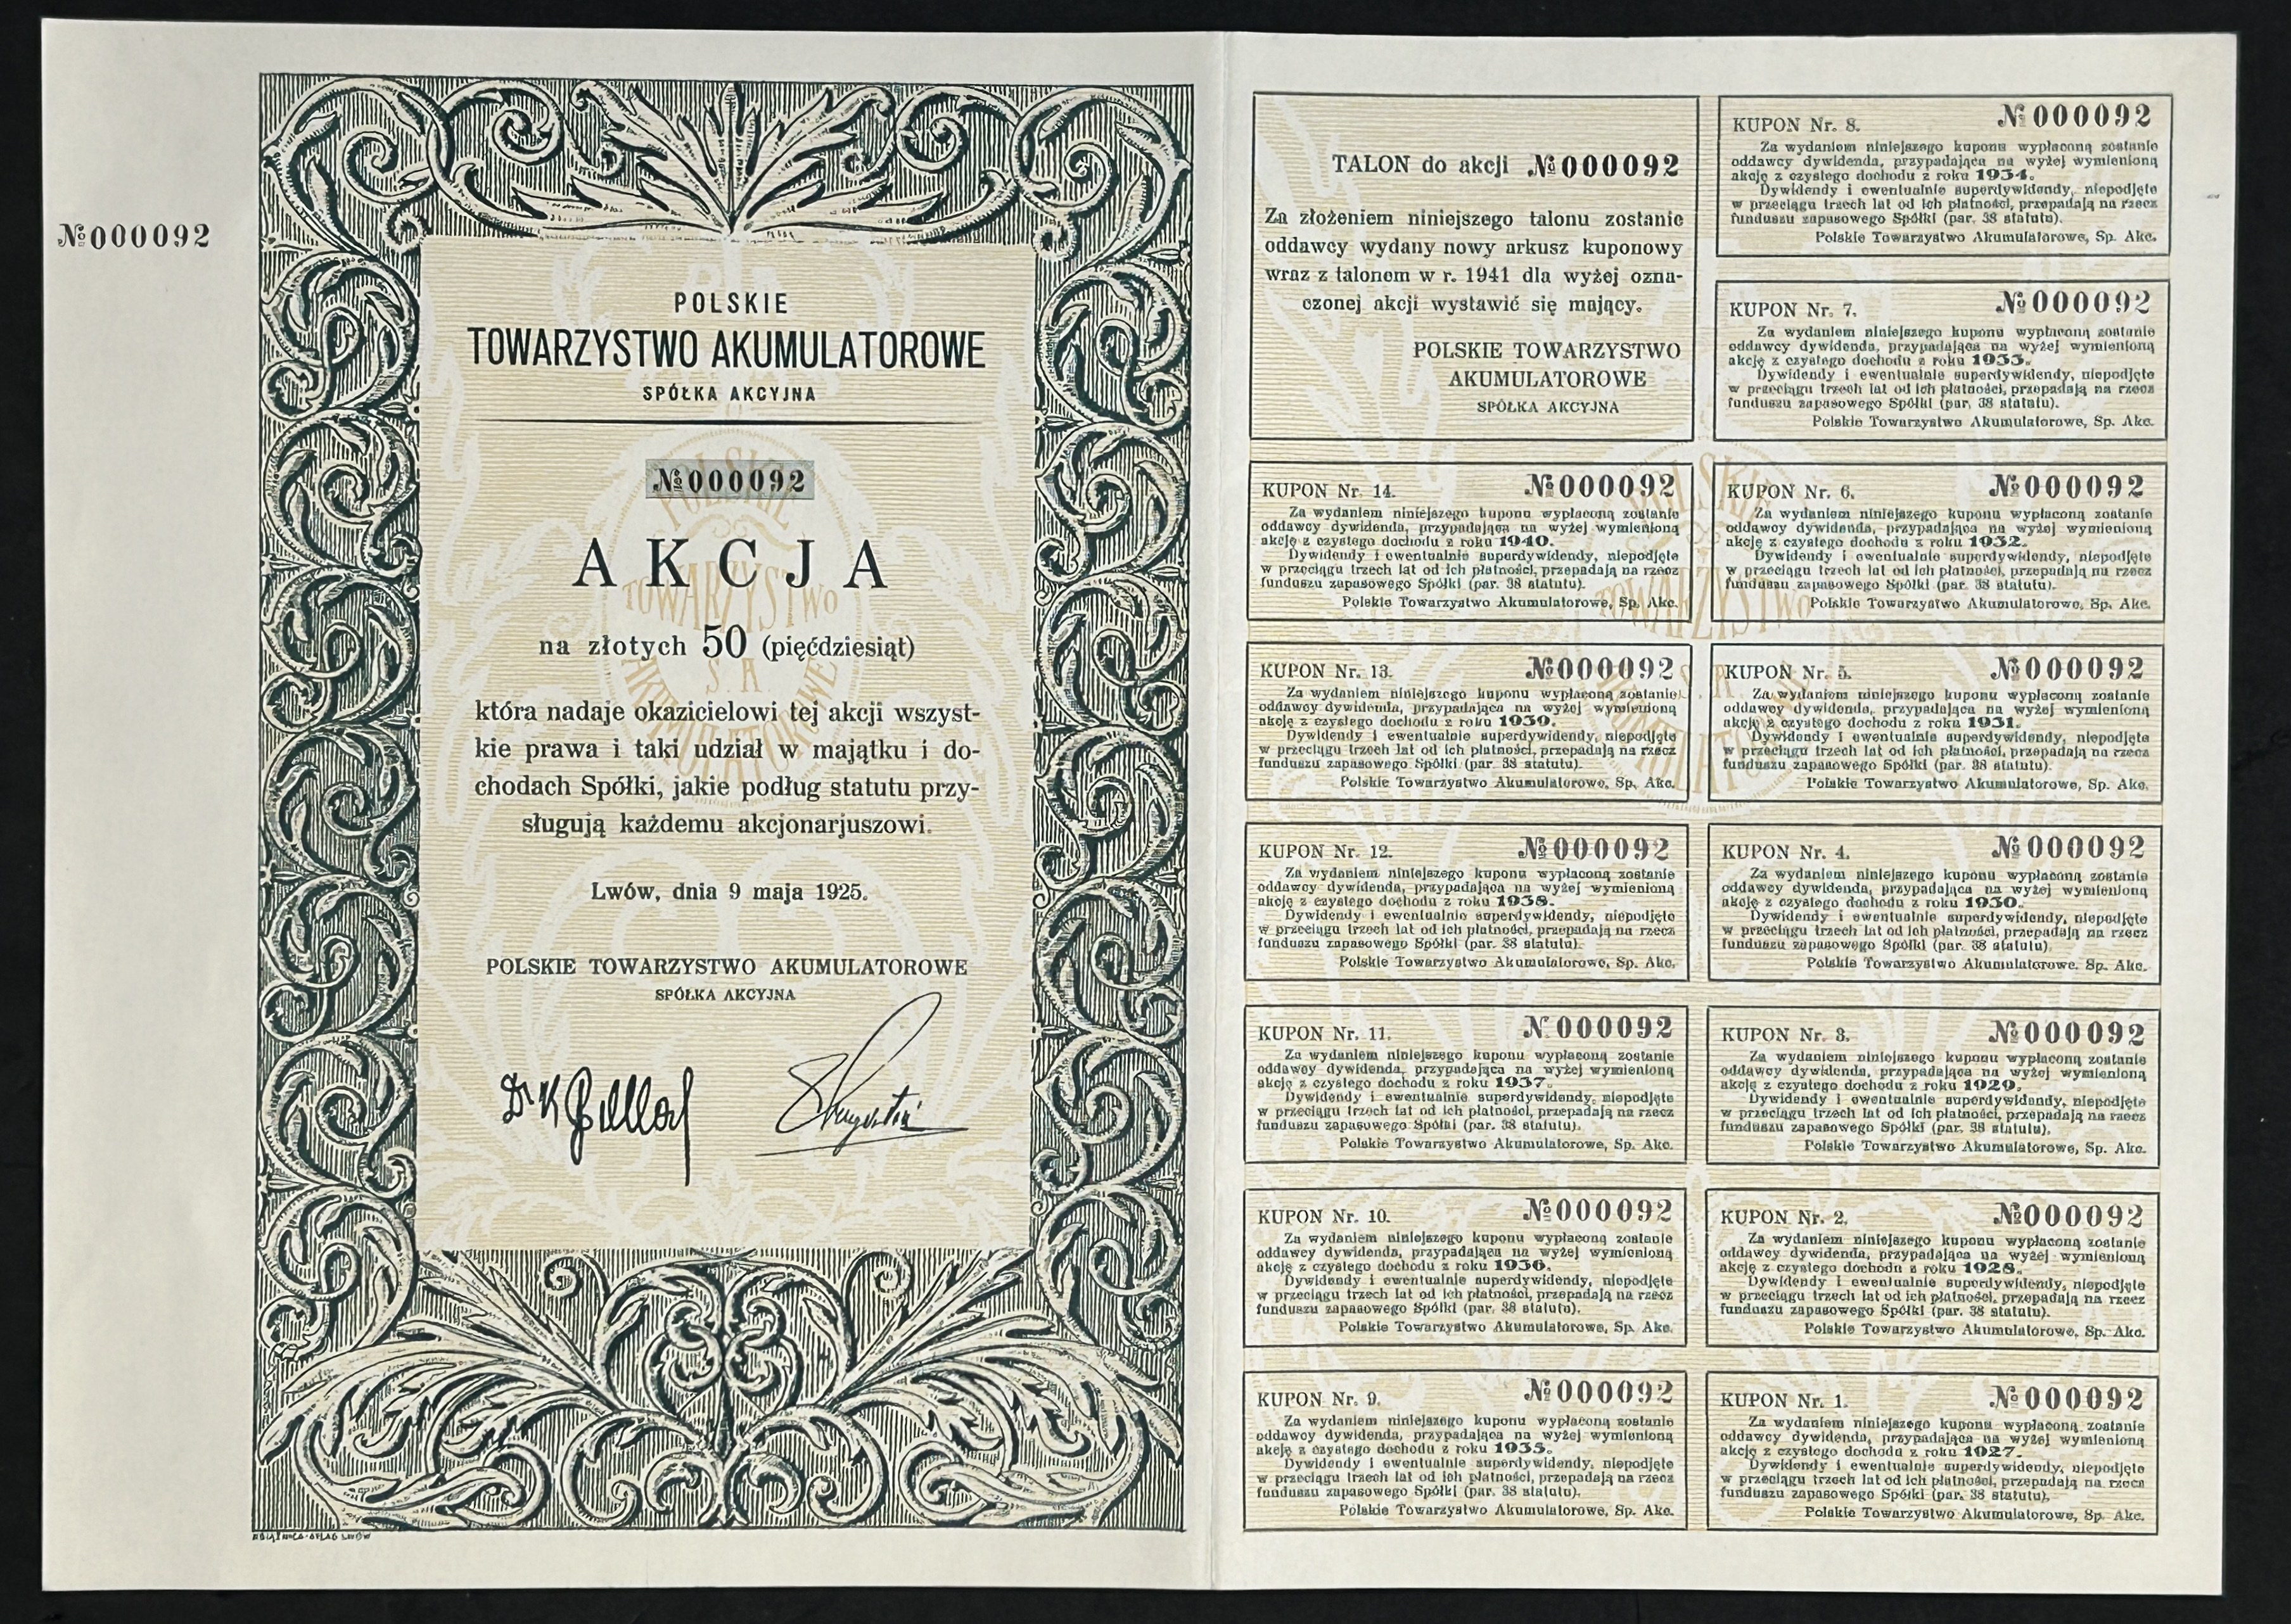 № 000092
POLSKIE
TOWARZYSTWO AKUMULATOROWE
SPÓŁKA AKCYJNA
№ 000092
AKCJA
na złotych 50 (pięćdziesiąt)
która nadaje okazicielowi tej akcji wszyst-
kie prawa i taki udział w majątku i do-
chodach Spółki, jakie podług statutu przy-
sługują każdemu akcjonarjuszowi.
Lwów, dnia 9 maja 1925.
POLSKIE TOWARZYSTWO AKUMULATOROWE
SPÓŁKA AKCYJNA
POLSKIE
TOWARZYSTWO
S. A.
AKUMULATOROWE
TALON do akcji № 000092
Za złożeniem niniejszego talonu zostanie
oddawcy wydany nowy arkusz kuponowy
wraz z talonem w r. 1941 dla wyżej ozna-
czonej akcji wystawić się mający.
POLSKIE TOWARZYSTWO
AKUMULATOROWE
SPÓŁKA AKCYJNA
KUPON Nr. 14. № 000092
Za wydaniem niniejszego kuponu wypłaconą zostanie
oddawcy dywidenda, przypadająca na wyżej wymienioną
akcję z czystego dochodu z roku 1940.
Dywidendy i ewentualnie superdywidendy, niepodjęte
w przeciągu trzech lat od ich płatności, przepadają na rzecz
funduszu zapasowego Spółki (par. 38 statutu).
Polskie Towarzystwo Akumulatorowe, Sp. Akc.
KUPON Nr. 13. № 000092
Za wydaniem niniejszego kuponu wypłaconą zostanie
oddawcy dywidenda, przypadająca na wyżej wymienioną
akcję z czystego dochodu z roku 1939.
Dywidendy i ewentualnie superdywidendy, niepodjęte
w przeciągu trzech lat od ich płatności, przepadają na rzecz
funduszu zapasowego Spółki (par. 38 statutu).
Polskie Towarzystwo Akumulatorowe, Sp. Akc.
KUPON Nr. 12. № 000092
Za wydaniem niniejszego kuponu wypłaconą zostanie
oddawcy dywidenda, przypadająca na wyżej wymienioną
akcję z czystego dochodu z roku 1938.
Dywidendy i ewentualnie superdywidendy, niepodjęte
w przeciągu trzech lat od ich płatności, przepadają na rzecz
funduszu zapasowego Spółki (par. 38 statutu).
Polskie Towarzystwo Akumulatorowe, Sp. Akc.
KUPON Nr. 11. № 000092
Za wydaniem niniejszego kuponu wypłaconą zostanie
oddawcy dywidenda, przypadająca na wyżej wymienioną
akcję z czystego dochodu z roku 1937.
Dywidendy i ewentualnie superdywidendy, niepodjęte
w przeciągu trzech lat od ich płatności, przepadają na rzecz
funduszu zapasowego Spółki (par. 38 statutu).
Polskie Towarzystwo Akumulatorowe, Sp. Akc.
KUPON Nr. 10. № 000092
Za wydaniem niniejszego kuponu wypłaconą zostanie
oddawcy dywidenda, przypadająca na wyżej wymienioną
akcję z czystego dochodu z roku 1936.
Dywidendy i ewentualnie superdywidendy, niepodjęte
w przeciągu trzech lat od ich płatności, przepadają na rzecz
funduszu zapasowego Spółki (par. 38 statutu).
Polskie Towarzystwo Akumulatorowe, Sp. Akc.
KUPON Nr. 9. № 000092
Za wydaniem niniejszego kuponu wypłaconą zostanie
oddawcy dywidenda, przypadająca na wyżej wymienioną
akcję z czystego dochodu z roku 1935.
Dywidendy i ewentualnie superdywidendy, niepodjęte
w przeciągu trzech lat od ich płatności, przepadają na rzecz
funduszu zapasowego Spółki (par. 38 statutu).
Polskie Towarzystwo Akumulatorowe, Sp. Akc.
KUPON Nr. 8. № 000092
Za wydaniem niniejszego kuponu wypłaconą zostanie
oddawcy dywidenda, przypadająca na wyżej wymienioną
akcję z czystego dochodu z roku 1934.
Dywidendy i ewentualnie superdywidendy, niepodjęte
w przeciągu trzech lat od ich płatności, przepadają na rzecz
funduszu zapasowego Spółki (par. 38 statutu).
Polskie Towarzystwo Akumulatorowe, Sp. Akc.
KUPON Nr. 7. № 000092
Za wydaniem niniejszego kuponu wypłaconą zostanie
oddawcy dywidenda, przypadająca na wyżej wymienioną
akcję z czystego dochodu z roku 1933.
Dywidendy i ewentualnie superdywidendy, niepodjęte
w przeciągu trzech lat od ich płatności, przepadają na rzecz
funduszu zapasowego Spółki (par. 38 statutu).
Polskie Towarzystwo Akumulatorowe, Sp. Akc.
KUPON Nr. 6. № 000092
Za wydaniem niniejszego kuponu wypłaconą zostanie
oddawcy dywidenda, przypadająca na wyżej wymienioną
akcję z czystego dochodu z roku 1932.
Dywidendy i ewentualnie superdywidendy, niepodjęte
w przeciągu trzech lat od ich płatności, przepadają na rzecz
funduszu zapasowego Spółki (par. 38 statutu).
Polskie Towarzystwo Akumulatorowe, Sp. Akc.
KUPON Nr. 5. № 000092
Za wydaniem niniejszego kuponu wypłaconą zostanie
oddawcy dywidenda, przypadająca na wyżej wymienioną
akcję z czystego dochodu z roku 1931.
Dywidendy i ewentualnie superdywidendy, niepodjęte
w przeciągu trzech lat od ich płatności, przepadają na rzecz
funduszu zapasowego Spółki (par. 38 statutu).
Polskie Towarzystwo Akumulatorowe, Sp. Akc.
KUPON Nr. 4. № 000092
Za wydaniem niniejszego kuponu wypłaconą zostanie
oddawcy dywidenda, przypadająca na wyżej wymienioną
akcję z czystego dochodu z roku 1930.
Dywidendy i ewentualnie superdywidendy, niepodjęte
w przeciągu trzech lat od ich płatności, przepadają na rzecz
funduszu zapasowego Spółki (par. 38 statutu).
Polskie Towarzystwo Akumulatorowe. Sp. Akc.
KUPON Nr. 3. № 000092
Za wydaniem niniejszego kuponu wypłaconą zostanie
oddawcy dywidenda, przypadająca na wyżej wymienioną
akcję z czystego dochodu z roku 1929.
Dywidendy i ewentualnie superdywidendy, niepodjęte
w przeciągu trzech lat od ich płatności, przepadają na rzecz
funduszu zapasowego Spółki (par. 38 statutu).
Polskie Towarzystwo Akumulatorowe, Sp. Akc.
KUPON Nr. 2. № 000092
Za wydaniem niniejszego kuponu wypłaconą zostanie
oddawcy dywidenda, przypadająca na wyżej wymienioną
akcję z czystego dochodu z roku 1928.
Dywidendy i ewentualnie superdywidendy, niepodjęte
w przeciągu trzech lat od ich płatności, przepadają na rzecz
funduszu zapasowego Spółki (par. 38 statutu).
Polskie Towarzystwo Akumulatorowe, Sp. Akc.
KUPON Nr. 1. № 000092
Za wydaniem niniejszego kuponu wypłaconą zostanie
oddawcy dywidenda, przypadająca na wyżej wymienioną
akcję z czystego dochodu z roku 1927.
Dywidendy i ewentualnie superdywidendy, niepodjęte
w przeciągu trzech lat od ich płatności, przepadają na rzecz
funduszu zapasowego Spółki (par. 38 statutu).
Polskie Towarzystwo Akumulatorowe, Sp. Akc.